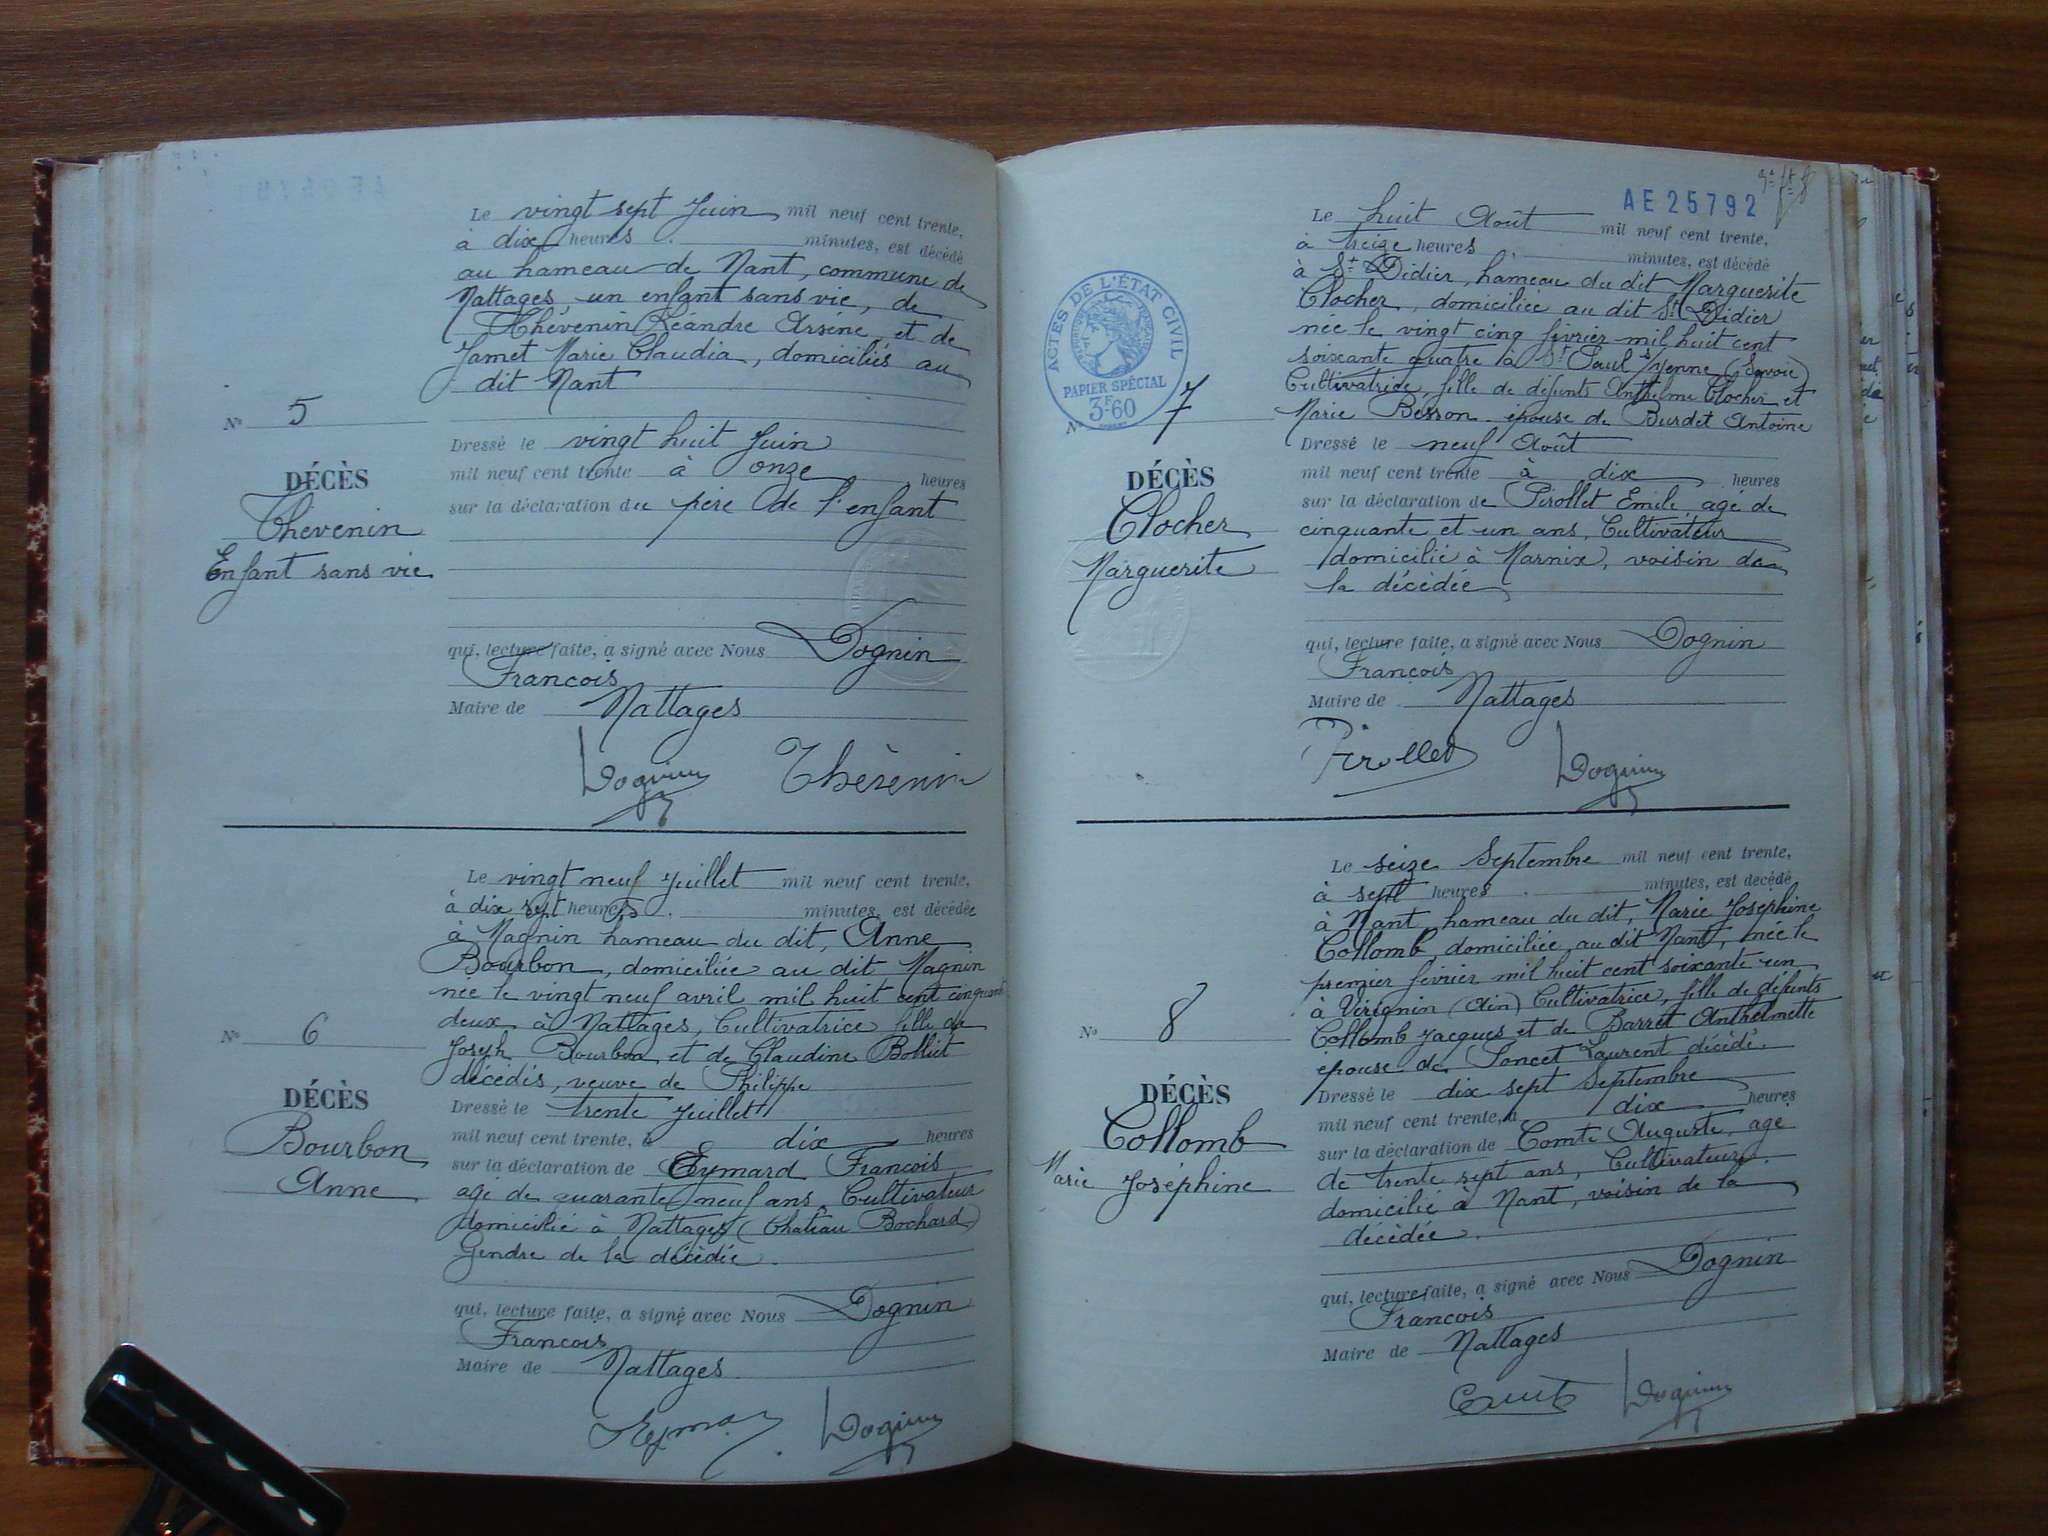 Le vingt sept Juin mil neuf cent trente,
à dix heures minutes, est décédé
au hameau de Nant, commune de
Nattages un enfant sans vie, de
Thévenin Léandre Arsène, et de
Jamet Marie Claudia, domiciliés au
dit Nant
N° 5
Dressé le vingt huit Juin
mil neuf cent trente à onze heures
DÉCÈS
sur la déclaration du père de l'enfant
Thevenin
Enfant sans vie
qui, lecture faite, a signé avec Nous Dognin
François
Maire de Nattages
Dognin Thévenin
Le vingt neuf Juillet mil neuf cent trente,
à dix sept heures minutes, est décédée
à Magnin hameau du dit, Anne
Bourbon, domiciliée au dit Magnin
née le vingt neuf avril mil huit cent cinquante
deux à Nattages, Cultivatrice fille de
N° 6
Joseph Bourbon et de Claudine
décédés, veuve de Philippe
DÉCÈS
Dressé le trente Juillet
mil neuf cent trente, à dix heures
Bourbon
sur la déclaration de Eymard François
Anne
agé de quarante neuf ans, Cultivateur
domicilié à Nattages (Château Bochard)
Gendre de la décédée.
qui, lecture faite, a signé avec Nous Dognin
François
Maire de Nattages
Dognin
AE 25792
Le huit Août mil neuf cent trente,
à treize heures minutes, est décédé
à St Didier, hameau du dit Marguerite
Clocher, domiciliée au dit St Didier
née le vingt cinq février mil huit cent
soixante quatre à St Paul s/ Yenne (Savoie)
Cultivatrice, fille de défunts Anthelme Clocher et
Marie Besson épouse de Burdet Antoine
ACTES DE L'ÉTAT CIVIL
RÉPUBLIQUE FRANÇAISE
PAPIER SPÉCIAL
3F.60
N° 7
Dressé le neuf Août
mil neuf cent trente à dix heures
DÉCÈS
sur la déclaration de Pirollet Emile, agé de
Clocher
cinquante et un ans, Cultivateur
Marguerite
domicilié à Marnix, voisin de
la décédée
qui, lecture faite, a signé avec Nous Dognin
François
Maire de Nattages
Pirollet Dognin
Le seize Septembre mil neuf cent trente,
à sept heures minutes, est decédé
à Nant hameau du dit, Marie Joséphine
Collomb, domiciliée, au dit Nant, née le
premier février mil huit cent soixante un
à Virignin (Ain) Cultivatrice, fille de défunts
N° 8
Collomb Jacques et de Barret Anthelmette
épouse de Poncet Laurent décédé.
DÉCÈS
Dressé le dix sept Septembre
mil neuf cent trente, à dix heures
Collomb
sur la déclaration de Comte Auguste, agé
Marie Joséphine
de trente sept ans, Cultivateur
domicilié à Nant, voisin de la
décédée.
qui, lecture faite, a signé avec Nous Dognin
François
Maire de Nattages
Dognin